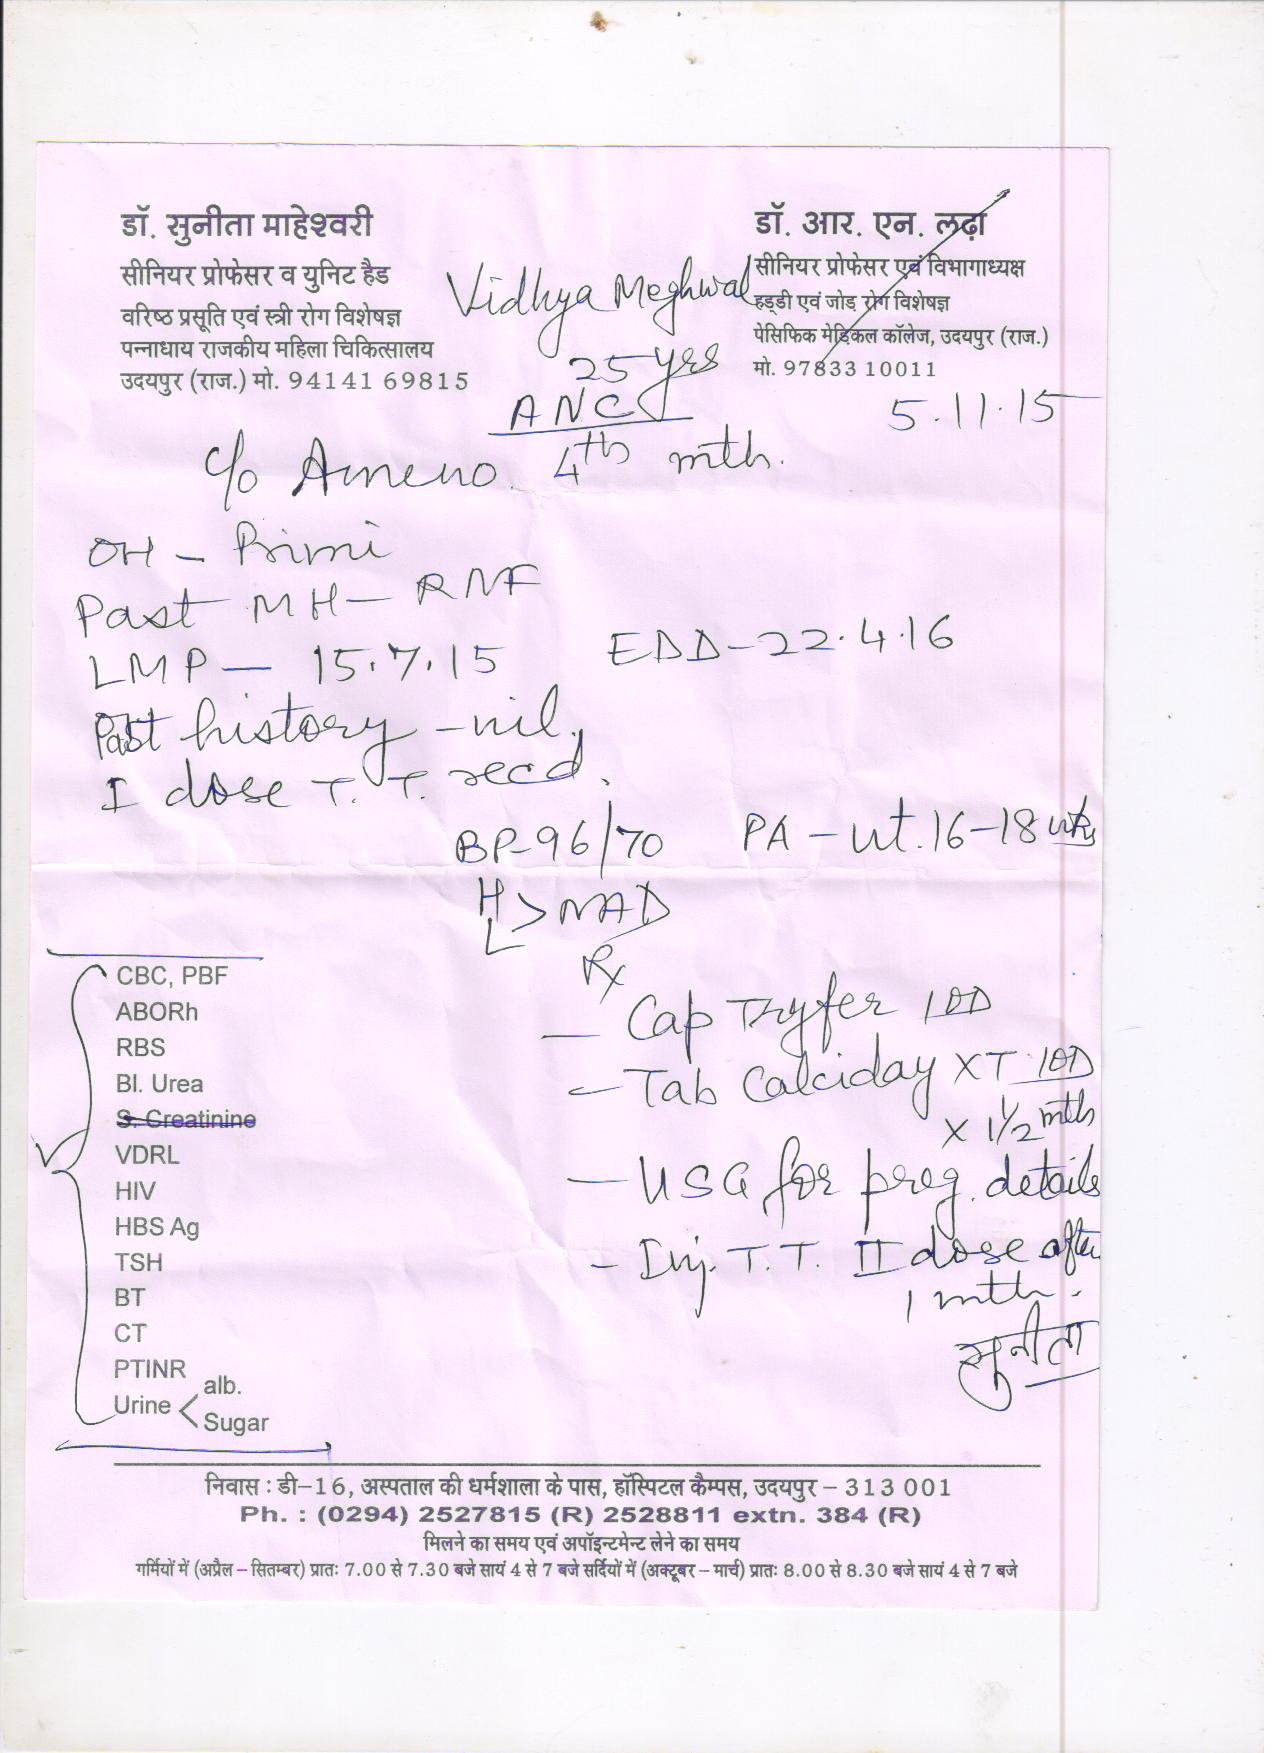 डॉ. सुनीता माहेश्वरी
सीनियर प्रोफेसर व युनिट हैड
वरिष्ठ प्रसूति एवं स्त्री रोग विशेषज्ञ
पन्नाधाय राजकीय महिला चिकित्सालय
उदयपुर (राज.) मो. 94141 69815
डॉ. आर. एन. लढ़ा
सीनियर प्रोफेसर एवं विभागाध्यक्ष
हड्डी एवं जोड़ रोग विशेषज्ञ
पेसिफिक मेडिकल कॉलेज, उदयपुर (राज.)
मो. 97833 10011
Vidhya Meghwal
25 yrs
ANC
5.11.15
c/o Ameno. 4th mth.
OH - Primi
Past MH - RNF
LMP - 15.7.15 EDD - 22.4.16
Past history - nil.
I dose T.T. recd.
BP-96/70 PA - ut. 16-18 wks
H
L > NAD
Rx
- Cap Tryfer 1OD
- Tab Calciday XT 1OD
x 1 1/2 mth
- USG for preg. details
- Inj. T.T. II dose after
1 mth.
सुनीता
CBC, PBF
ABORh
RBS
Bl. Urea
S. Creatinine
VDRL
HIV
HBS Ag
TSH
BT
CT
PTINR
Urine < alb.
Sugar
निवास : डी-16, अस्पताल की धर्मशाला के पास, हॉस्पिटल कैम्पस, उदयपुर - 313 001
Ph. : (0294) 2527815 (R) 2528811 extn. 384 (R)
मिलने का समय एवं अपॉइन्टमेन्ट लेने का समय
गर्मियों में (अप्रैल - सितम्बर) प्रातः 7.00 से 7.30 बजे सायं 4 से 7 बजे सर्दियों में (अक्टूबर - मार्च) प्रातः 8.00 से 8.30 बजे सायं 4 से 7 बजे